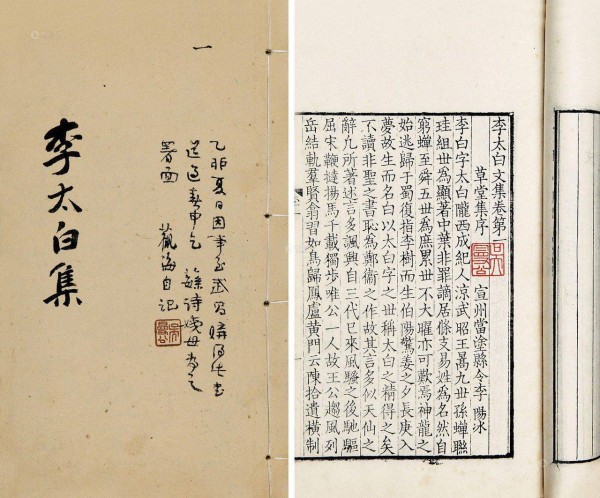 一
李太白集
乙卯夏日因事
署面
自記
李太白文集卷第一
草堂集序 宣州當塗縣令李 陽冰
李白字太白隴西成紀人涼武昭王暠九世孫蟬聯
珪組世為顯著中葉非罪謫居條支易姓為名然自
窮蟬至舜五世為庶累世不大曜亦可歎焉神龍之
始逃歸于蜀復指李樹而生伯陽驚姜之夕長庚入
夢故生而名白以太白字之世稱太白之精得之矣
不讀非聖之書恥為鄭衛之作故其言多似天仙之
辭凡所著述言多諷興自三代已來風騷之後馳驅
屈宋鞭撻揚馬千載獨步唯公一人故王公趨風列
岳結軌羣賢翕習如鳥歸鳳盧黃門云陳拾遺橫制